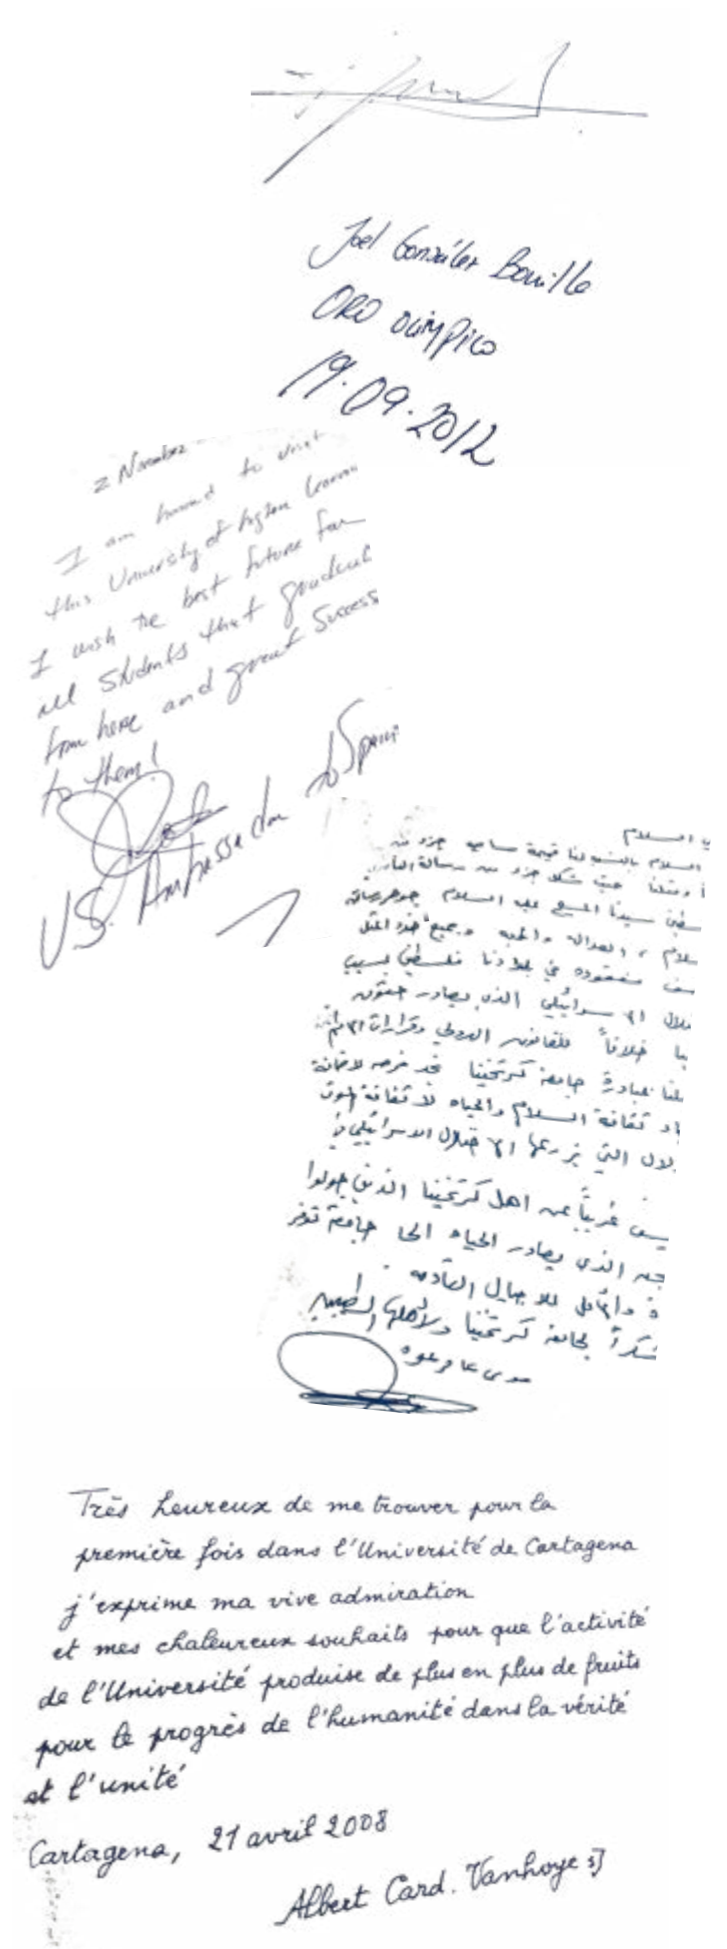 Joel González Bonilla
ORO OLIMPICO
19.09.2012
2 November
I am honored to visit
this University of higher learnin
I wish the best future for
all students that graduat
from here and great success
to them!
US. Ambassador to Spain
السلام
السلام بالنسبة لنا قيمة سامية جزء من
سيدنا المسيح عليه السلام
سلام، العدالة والمحبة وجميع هذه المثل
مفقوده في بلادنا فلسطين بسبب
الذي يصادر حقوق
خلافاً للقانون الدولي وقرارات
جامعة كرتخينا
ثقافة السلام والحياه لا ثقافة الموت
التي يزرعها الاحتلال الاسرائيلي
غريباً عن اهل كرتخينا الذين حولوا
الذي يصادر الحياه الى جامعة
للاجيال القادمه
شكراً لجامعة كرتخينا ولاهلها الطيبين
Très heureux de me trouver pour la
première fois dans l'Université de Cartagena
j'exprime ma vive admiration
et mes chaleureux souhaits pour que l'activité
de l'Université produise de plus en plus de fruits
pour le progrès de l'humanité dans la vérité
et l'unité
Cartagena, 21 avril 2008
Albert Card. Vanhoye sj